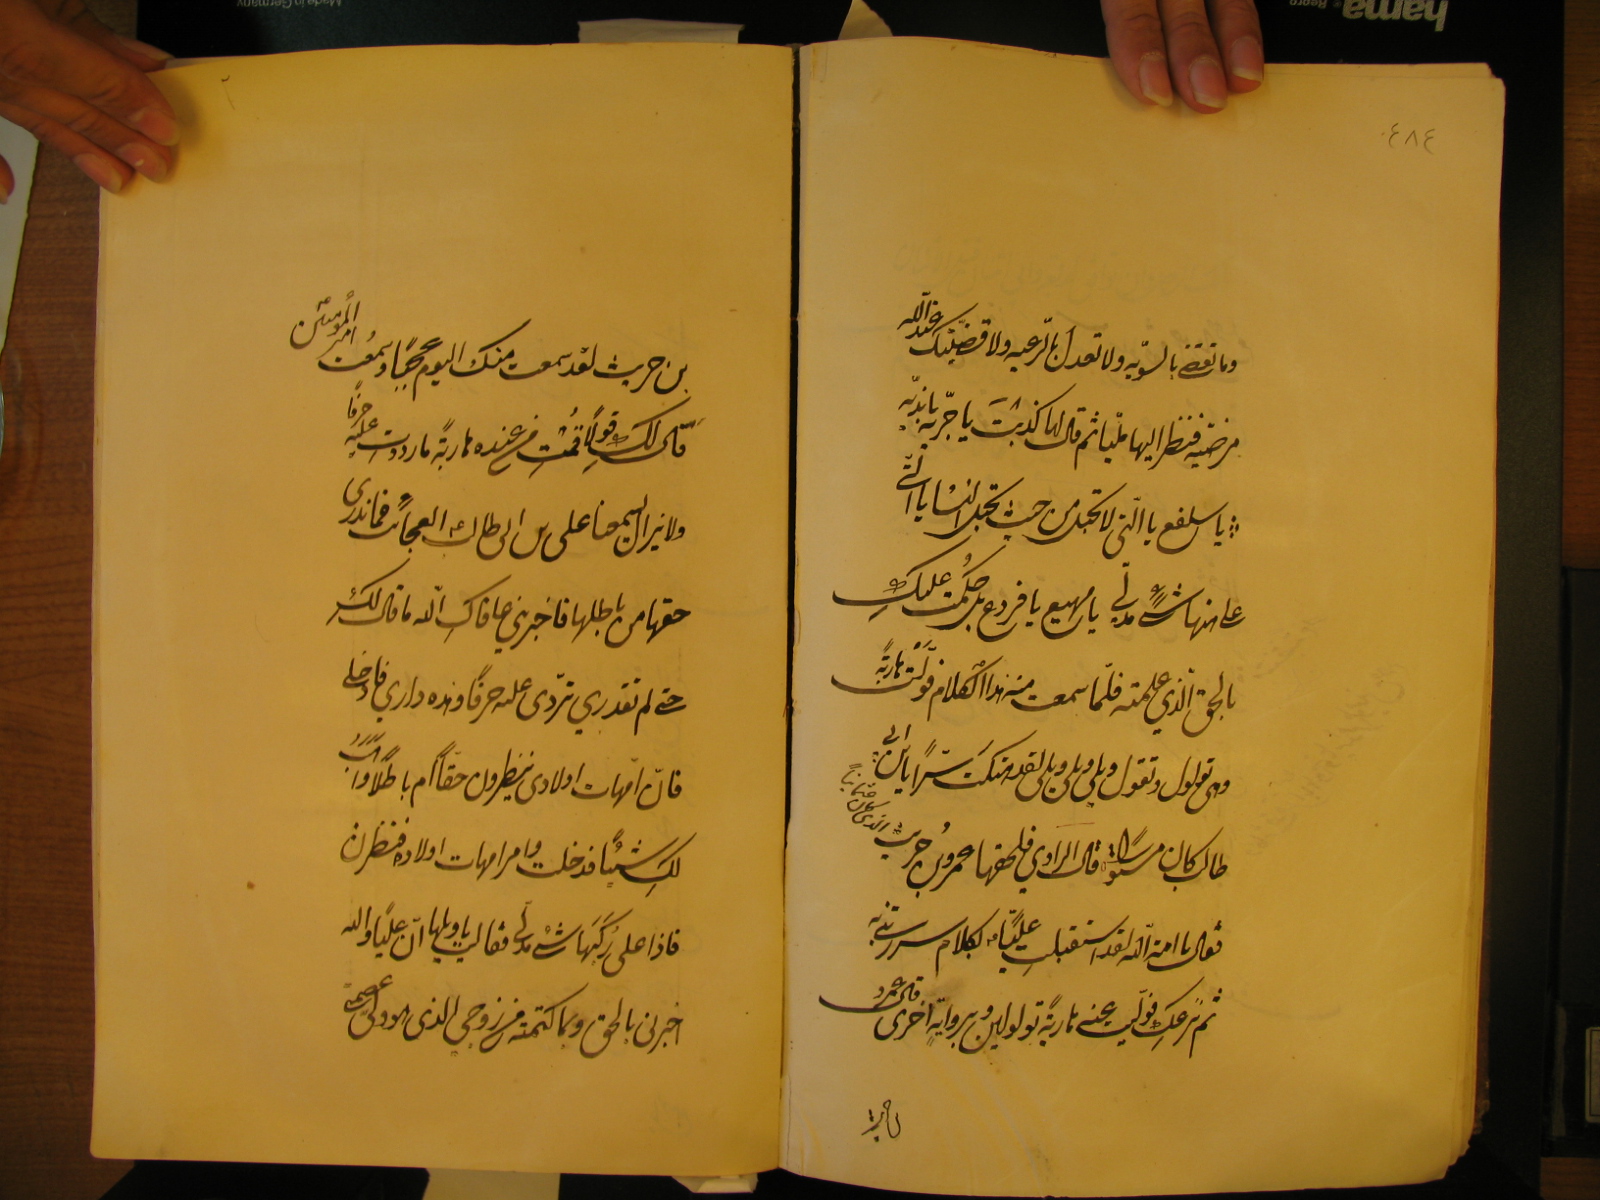 ٤٨٤
وما تقضي بالسويّه ولا تعدل بالرّعيه ولا قضيّتك عند الله
مرضيّه فنظر اليها مليّا ثم قال لها كذبت يا جريّه يا بذيّه
يا سلفع يا الّتي لا تحبل من حيث تحبل النسا يا الّتي
على منها شئ مدلّى يا مهيع يا قردع بل حكمت عليك
بالحق الّذي علمته فلمّا سمعت منه هذا الكلام فولّت هاربةً
وهي تولول وتقول ويلي ويلي ويلي لقد هتكت سرّاً يابن ابي
طالب كان مستوراً قال الراوي فلحقها عمرو بن حريث الذي كان
فقال يا امة الله لقد استقبلت عليّاً بكلام سررتني به
ثم نزعك فولّيت عنه هاربةً تولولين وبرواية اخرى قال عمرو
بن حريث
بن حريث لقد سمعت منك اليوم عجبًا وسمعت امير المؤمنين
قال لك قولًا قمت من عنده هاربةً ما رددت عليه حرفًا
ولا نزال يسمعنا علي بن ابي طالب العجائب فما ندري
حقها من باطلها فاخبريني عافاك الله ما قال لك
حتى لم تقدري تردّي عليه حرفًا وهذه داري فادخلي
فانّ امّهات اولادي ينظرون حقّاً ام باطلًا واهب
لك شيئًا فدخلت وامر امهات اولاده فنظرن
فاذا على ركبها شئ مدلّى فقالت يا ويلها انّ عليًا والله
اخبرني بالحق وبما كتمته من زوجي الذي هو وليّ عصمتي